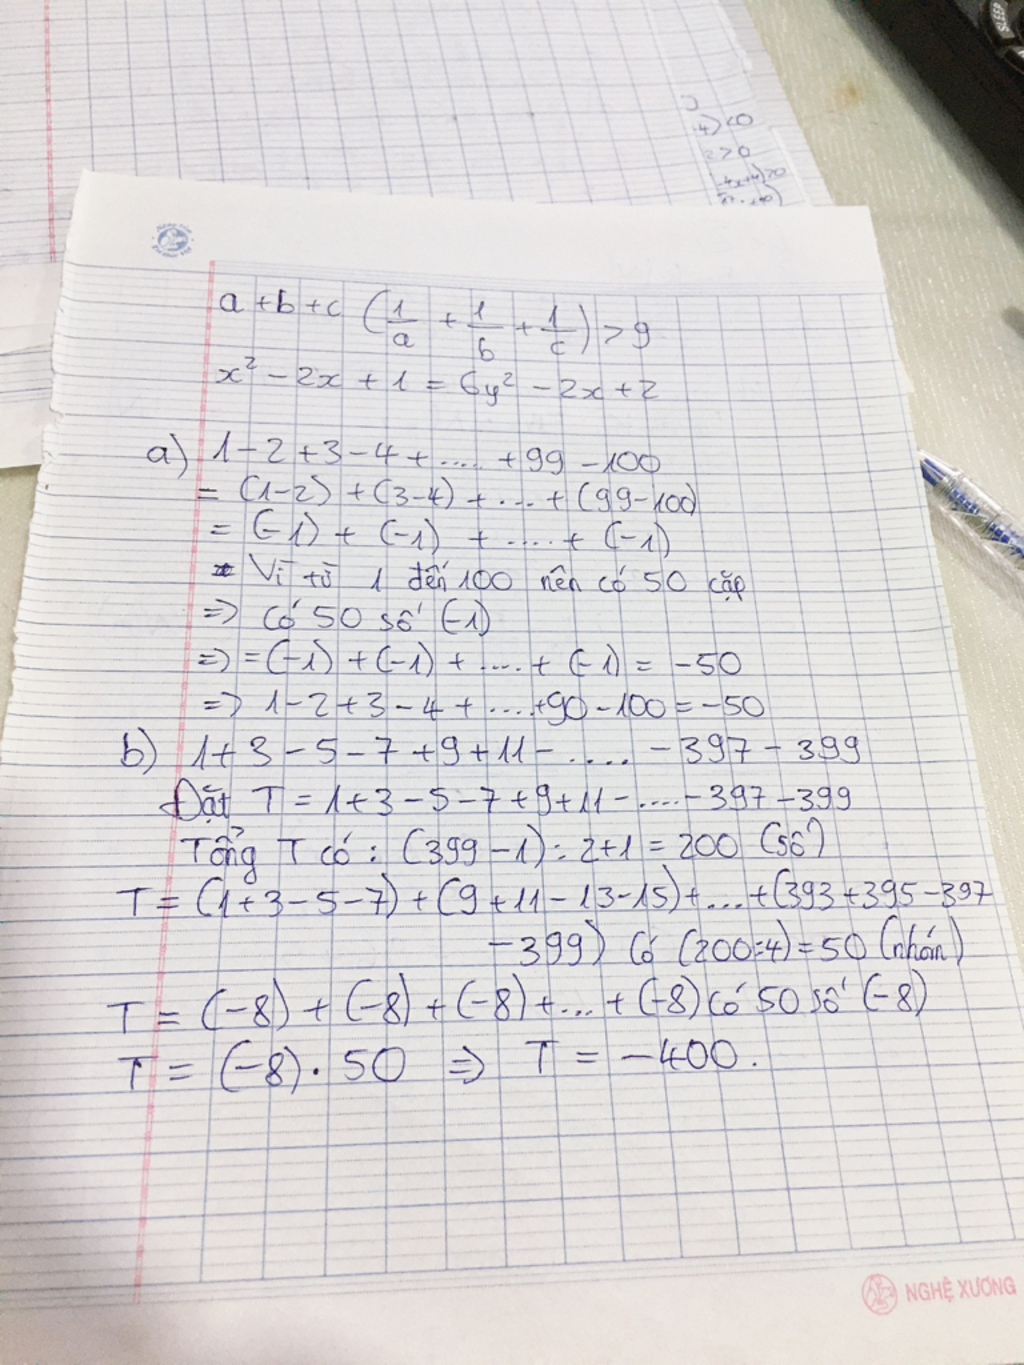 SLEEP
4) <0
>0
a + b + c (1/a + 1/b + 1/c) > 9
x² - 2x + 1 = 6y² - 2x + 2
a) 1 - 2 + 3 - 4 + .... + 99 - 100
= (1-2) + (3-4) + ... + (99-100)
= (-1) + (-1) + .... + (-1)
Vì từ 1 đến 100 nên có 50 cặp
=> có 50 số (-1)
=> = (-1) + (-1) + .... + (-1) = -50
=> 1 - 2 + 3 - 4 + ... + 90 - 100 = -50
b) 1 + 3 - 5 - 7 + 9 + 11 - .... - 397 - 399
Đặt T = 1 + 3 - 5 - 7 + 9 + 11 - .... - 397 - 399
Tổng T có : (399 - 1) : 2 + 1 = 200 (số)
T = (1 + 3 - 5 - 7) + (9 + 11 - 13 - 15) + ... + (393 + 395 - 397
- 399) Có (200:4) = 50 (nhóm)
T = (-8) + (-8) + (-8) + ... + (-8) có 50 số (-8)
T = (-8) . 50 => T = -400.
NGHỆ XƯƠNG